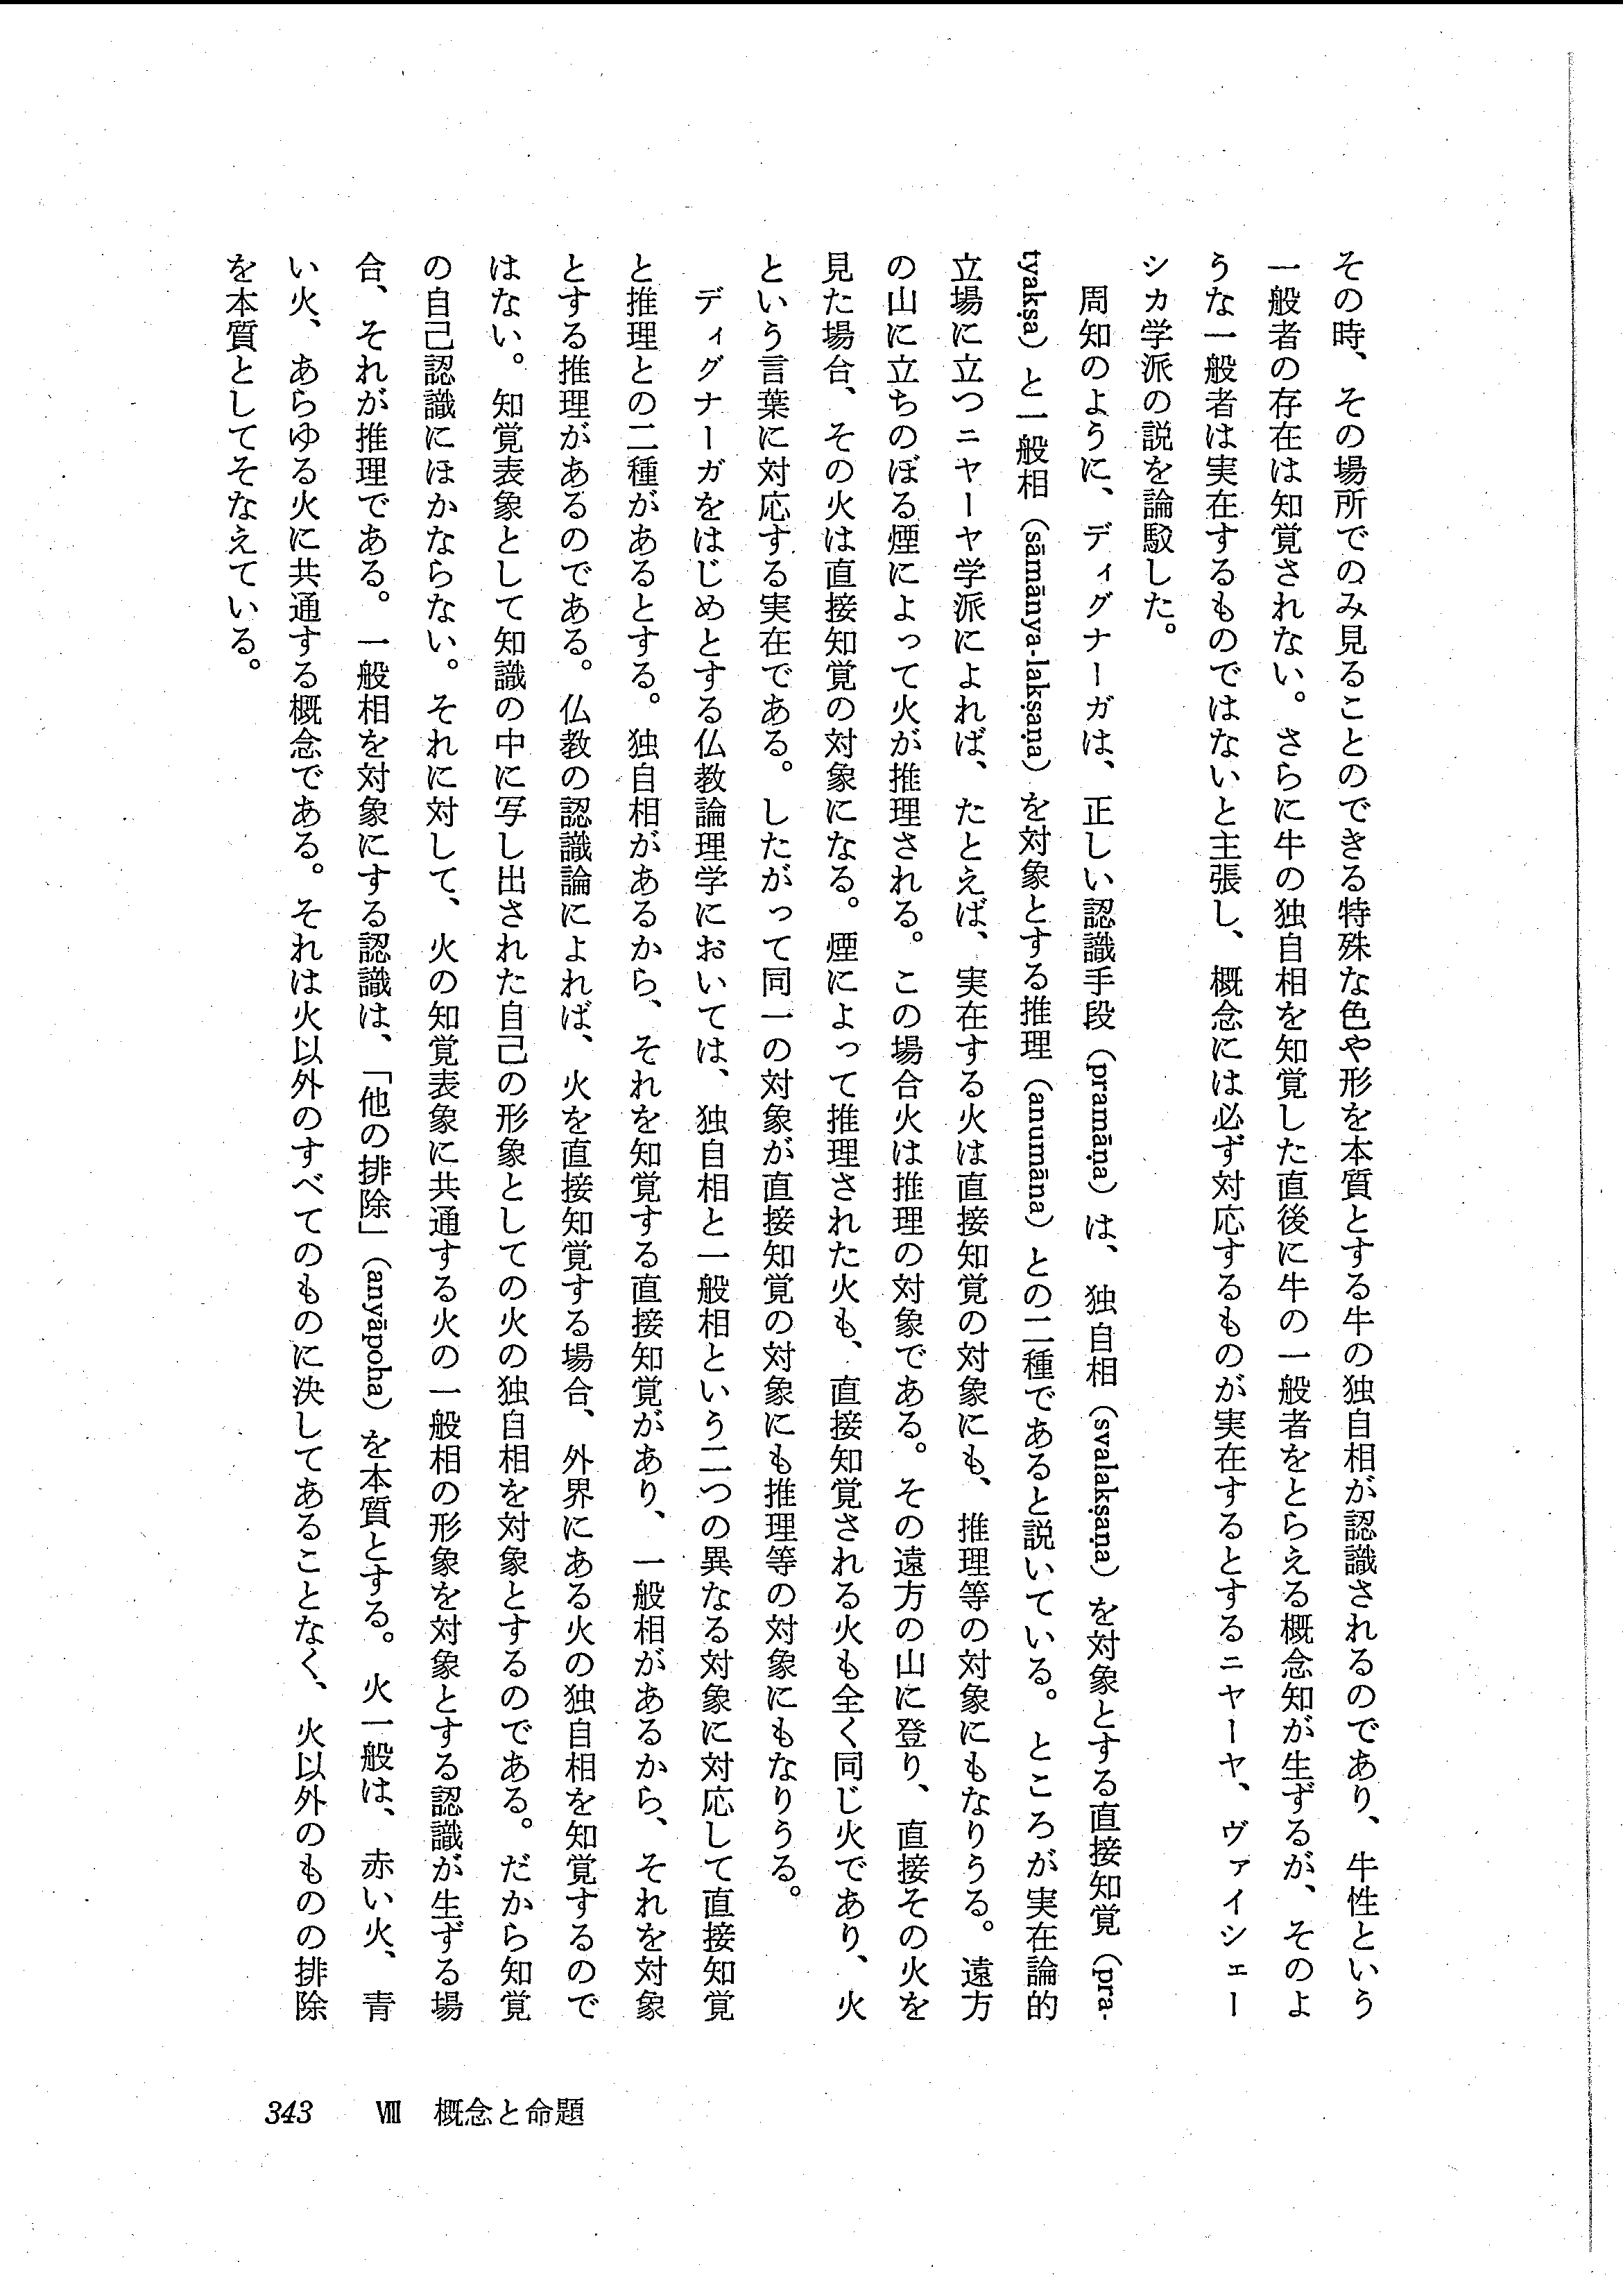 その時、その場所でのみ見ることのできる特殊な色や形を本質とする牛の独自相が認識されるのであり、牛性という
一般者の存在は知覚されない。さらに牛の独自相を知覚した直後に牛の一般者をとらえる概念知が生ずるが、そのよ
うな一般者は実在するものではないと主張し、概念には必ず対応するものが実在するとするニヤーヤ、ヴァイシェー
シカ学派の説を論駁した。
周知のように、ディグナーガは、正しい認識手段（pramāṇa）は、独自相（svalakṣaṇa）を対象とする直接知覚（pra-
tyakṣa）と一般相（sāmānya-lakṣaṇa）を対象とする推理（anumāna）との二種であると説いている。ところが実在論的
立場に立つニヤーヤ学派によれば、たとえば、実在する火は直接知覚の対象にも、推理等の対象にもなりうる。遠方
の山に立ちのぼる煙によって火が推理される。この場合火は推理の対象である。その遠方の山に登り、直接その火を
見た場合、その火は直接知覚の対象になる。煙によって推理された火も、直接知覚される火も全く同じ火であり、火
という言葉に対応する実在である。したがって同一の対象が直接知覚の対象にも推理等の対象にもなりうる。
ディグナーガをはじめとする仏教論理学においては、独自相と一般相という二つの異なる対象に対応して直接知覚
と推理との二種があるとする。独自相があるから、それを知覚する直接知覚があり、一般相があるから、それを対象
とする推理があるのである。仏教の認識論によれば、火を直接知覚する場合、外界にある火の独自相を知覚するので
はない。知覚表象として知識の中に写し出された自己の形象としての火の独自相を対象とするのである。だから知覚
の自己認識にほかならない。それに対して、火の知覚表象に共通する火の一般相の形象を対象とする認識が生ずる場
合、それが推理である。一般相を対象にする認識は、「他の排除」（anyāpoha）を本質とする。火一般は、赤い火、青
い火、あらゆる火に共通する概念である。それは火以外のすべてのものに決してあることなく、火以外のものの排除
を本質としてそなえている。
343 Ⅷ 概念と命題